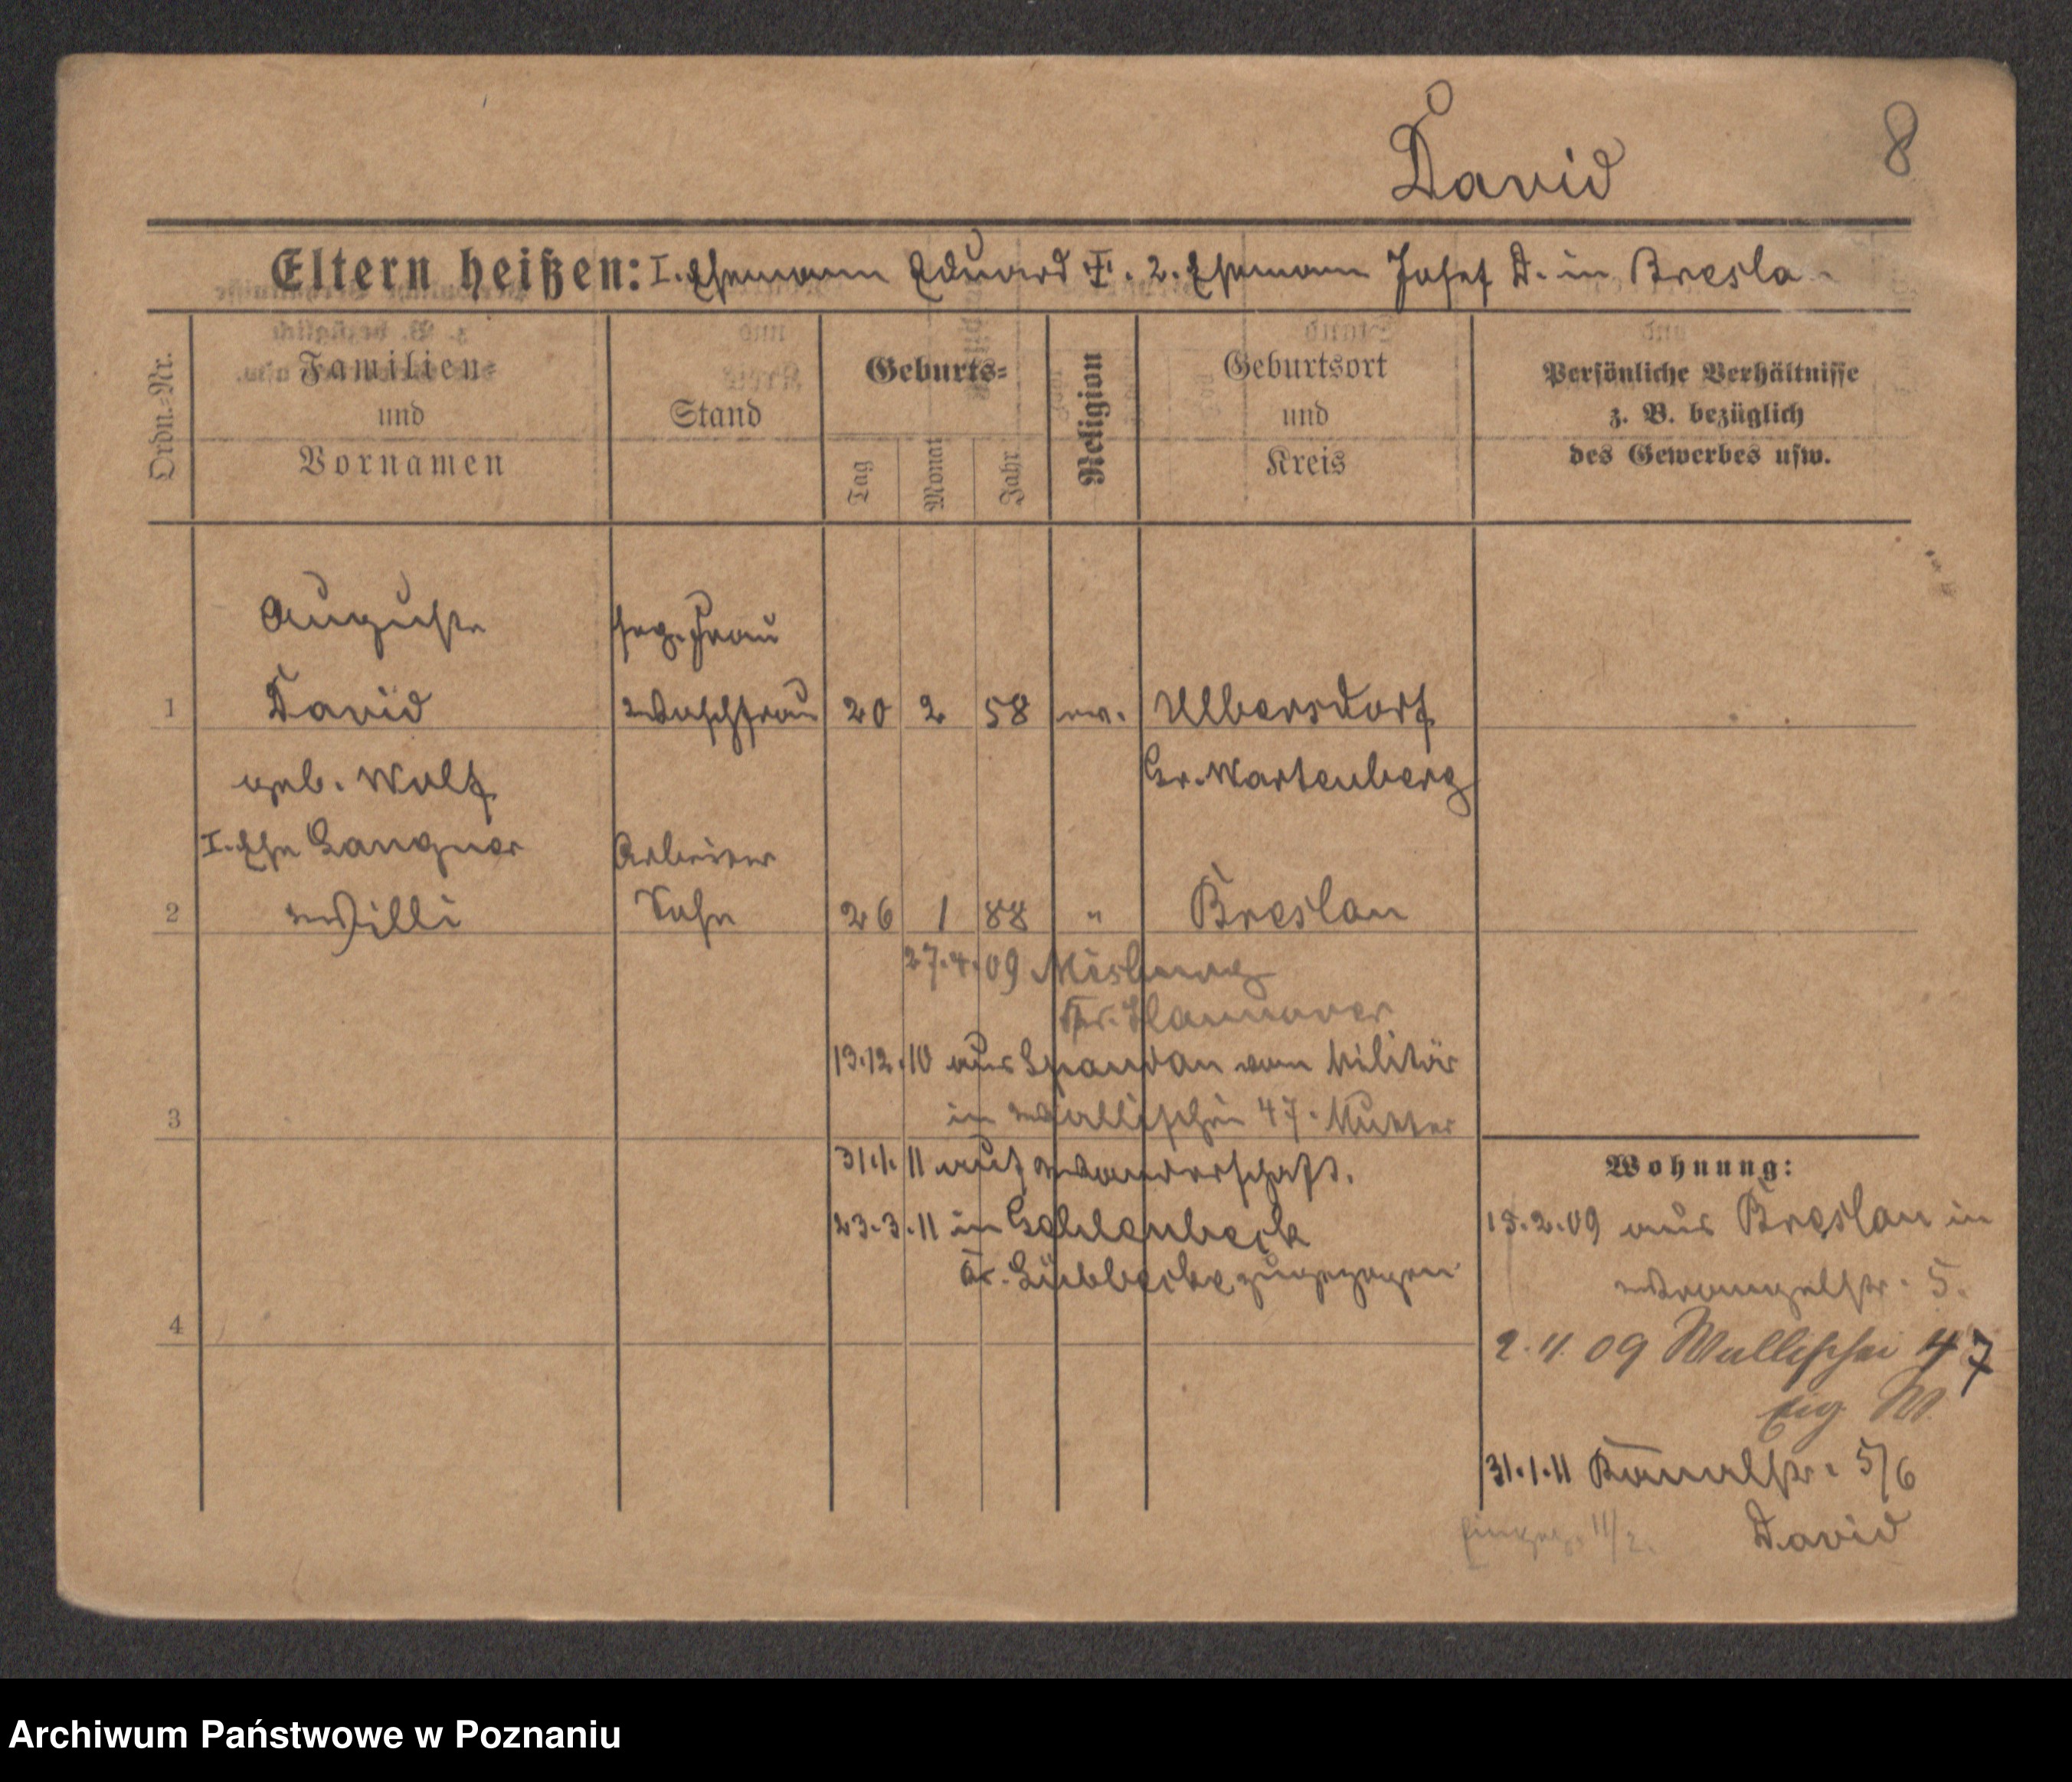 David
8
Eltern heißen: I. Ehemann Eduard †. 2. Ehemann Josef D. in Bresla
Ordn.-Nr.
Familien-
und
Vornamen
Stand
Geburts-
Tag
Monat
Jahr
Religion
Geburtsort
und
Kreis
Persönliche Verhältnisse
z. B. bezüglich
des Gewerbes usw.
Auguste
Frau
1 David Waschfrau 20 2 58 ev. Ulbersdorf
geb. Wolf Gr. Wartenberg
I. Ehe Langner Arbeiter
2 Willi Sohn 26 1 88 " Breslau
27.4.09 Misburg
Kr. Hannover
13.12.10 aus Spandau vom Militär
3 in Wallischei 47. Mutter
31.1.11 auf Wanderschaft.
23.3.11 in Gehlenbeck
Kr. Lübbecke zugezogen
4
Wohnung:
15.2.09 aus Breslau in
Wrangelstr. 5.
2.11.09 Wallischei 47
Eig. W.
31.1.11 Kanalstr. 5/6
11/2. David
Archiwum Państwowe w Poznaniu